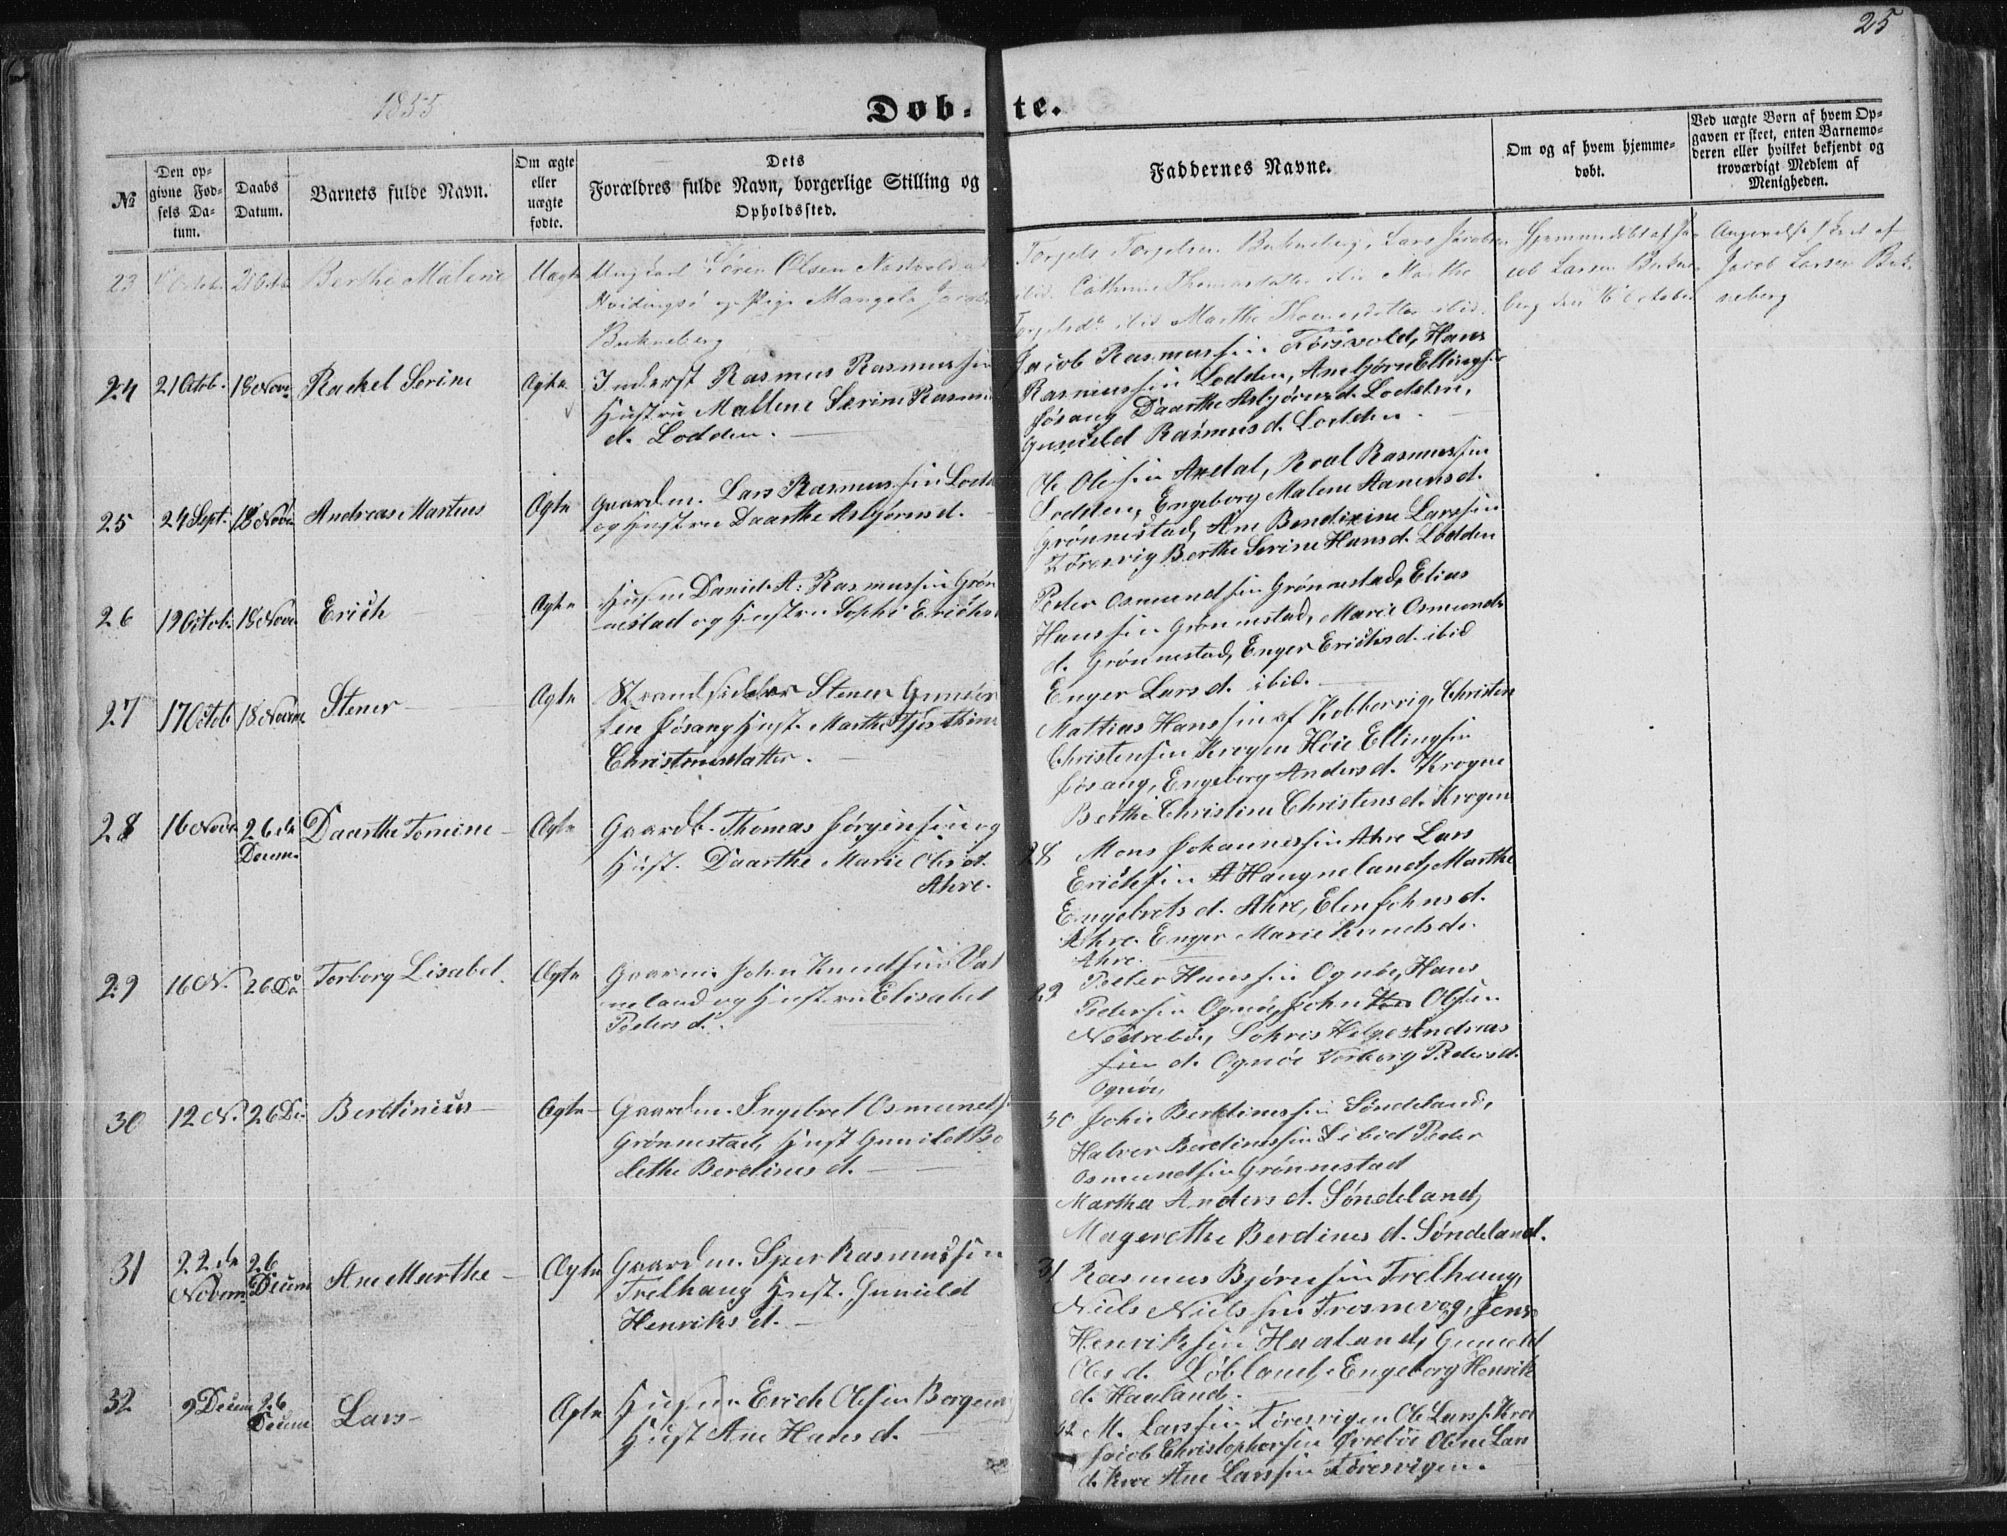 25
1855
Døb-te.
№
Den opgivne Fødsels Datum.
Daabs Datum.
Barnets fulde Navn.
Om ægte eller uægte fødte.
Dets Forældres fulde Navn, borgerlige Stilling og Opholdssted.
Faddernes Navne.
Om og af hvem hjemmedøbt.
Ved uægte Børn af hvem Opgaven er skeet, enten Barnemoderen eller hvilket bekjendt og troværdigt Medlem af Menigheden.
23 Octob. 21 Octb. Berthe Malene Uægte
Ungkarl Søren Olsen
Hvidingsø og Pige
Bukneberg
Torgels Torgelsen Bukneberg, Lars Jacobsen
ibid. Cathrine Thomasdatter ibid Marthe
Torgelsdr ibid Marthe Thomasdatter ibid.
Hjemmedøbt af Ja-
cob Larsen Bukne-
berg den 16 October
Angivelse skeet af
Jacob Larsen Buk-
neberg
24 21 Octob. 18 Nove Rachel Serine Ægte
Inderst Rasmus Rasmussen
Hustru Mallene Serine Rasmus
d. Lodden.
Jacob Rasmussen Tørsvold, Hans
Rasmussen Lodden, Anebjørn Ellingsen
Jøsang Daarthe Asbjørnsd. Lodden,
Gunield Rasmusd. Lodden.
25 24 Sept. 18 Nove Andreas Martius Ægte
Gaardm. Lars Rasmussen Lodd
og Hustru Daarthe Asbjørnsd.
Ole Olesen Aredal, Roal Rasmussen
Lodden, Engeborg Malene Aanensd.
Grønnestad, Ane Bendixine Larssen
Toresvig Berthe Serine Hansd. Lodden
26 19 Octob. 18 Nove Erich Ægte
Husm Daniel A: Rasmussen Grøn
nestad og Hustru Sophi Erichs
Peder Osmundsen Grønnestad, Elias
Hanssen Grønnestad, Marie Osmunds
d. Grønnestad, Enger Erichsd. ibid
Enger Larsd. ibid.
27 17 Octob 18 Novem Stener Ægte
Strandsidder Stener Gunder
sen Jøsang Hust. Marthe
Christensdatter.
Mattias Hanssen af Kobbervig, Christen
Christensen Krogen Høie Ellingsen
Jøsang, Engeborg Andersd. Krogne
Berthe Christine Christensd. Krogen
28 16 Nove 26 de Decem. Daarthe Tomine Ægte
Gaardb. Thomas Jørgensen og
Hust. Daarthe Marie Olesd.
Ahre.
28 Mons Johannessen Ahre Lars
Erichsen Haugneland, Marthe
Engebrets d. Ahre, Elen Johnsd.
Ahre. Enger Marie Knudsd.
Ahre.
29 16 N. 26 De Torborg Lisabet Ægte
Gaarm. John Knudsen Vat
neland og Hustru Elisabet
Pedersd.
29 Peder Hanssen Ognøe, Hans
Pedersen Ognøe, John Olsen
Nedrebøe, Helge Andreas
sen d. Ognøe Torborg Pedersd.
Ognøe,
30 12 N. 26 De Berdinius Ægte
Gaardm. Ingebret Osmunds.
Grønnestad, Hust Gunild Bo
lethe Berdinesd.
30 John Berdinessen Søndeland,
Halver Berdinessen ibid Peder
Osmundsen Grønnestad
Martha Andersd. Søndeland,
Magrethe Berdinesd. Søndeland.
31 22 de Novem 26 Decem Ane Marthe Ægte
Gaardm. Sjur Rasmussen
Trelhaug Hust. Gunild
Henriksd.
31 Rasmus Bjørnsen Trelhaug,
Niels Nielssen Trosnevog, Jens
Henriksen Haaland, Gunield
Olesd. Løbland, Engeborg Henrik
d. Hauland.
32 9 Decem 26 Decem Lars Ægte
Husm Erich Olesen Borgen
Hust Ane Hansd.
32 M. Larssen Toresvigen Ole Larss. Kroe
Jacob Christophersen Øvrebøe Oline Lars
d. Kroe Ane Larssen Toresvigen.